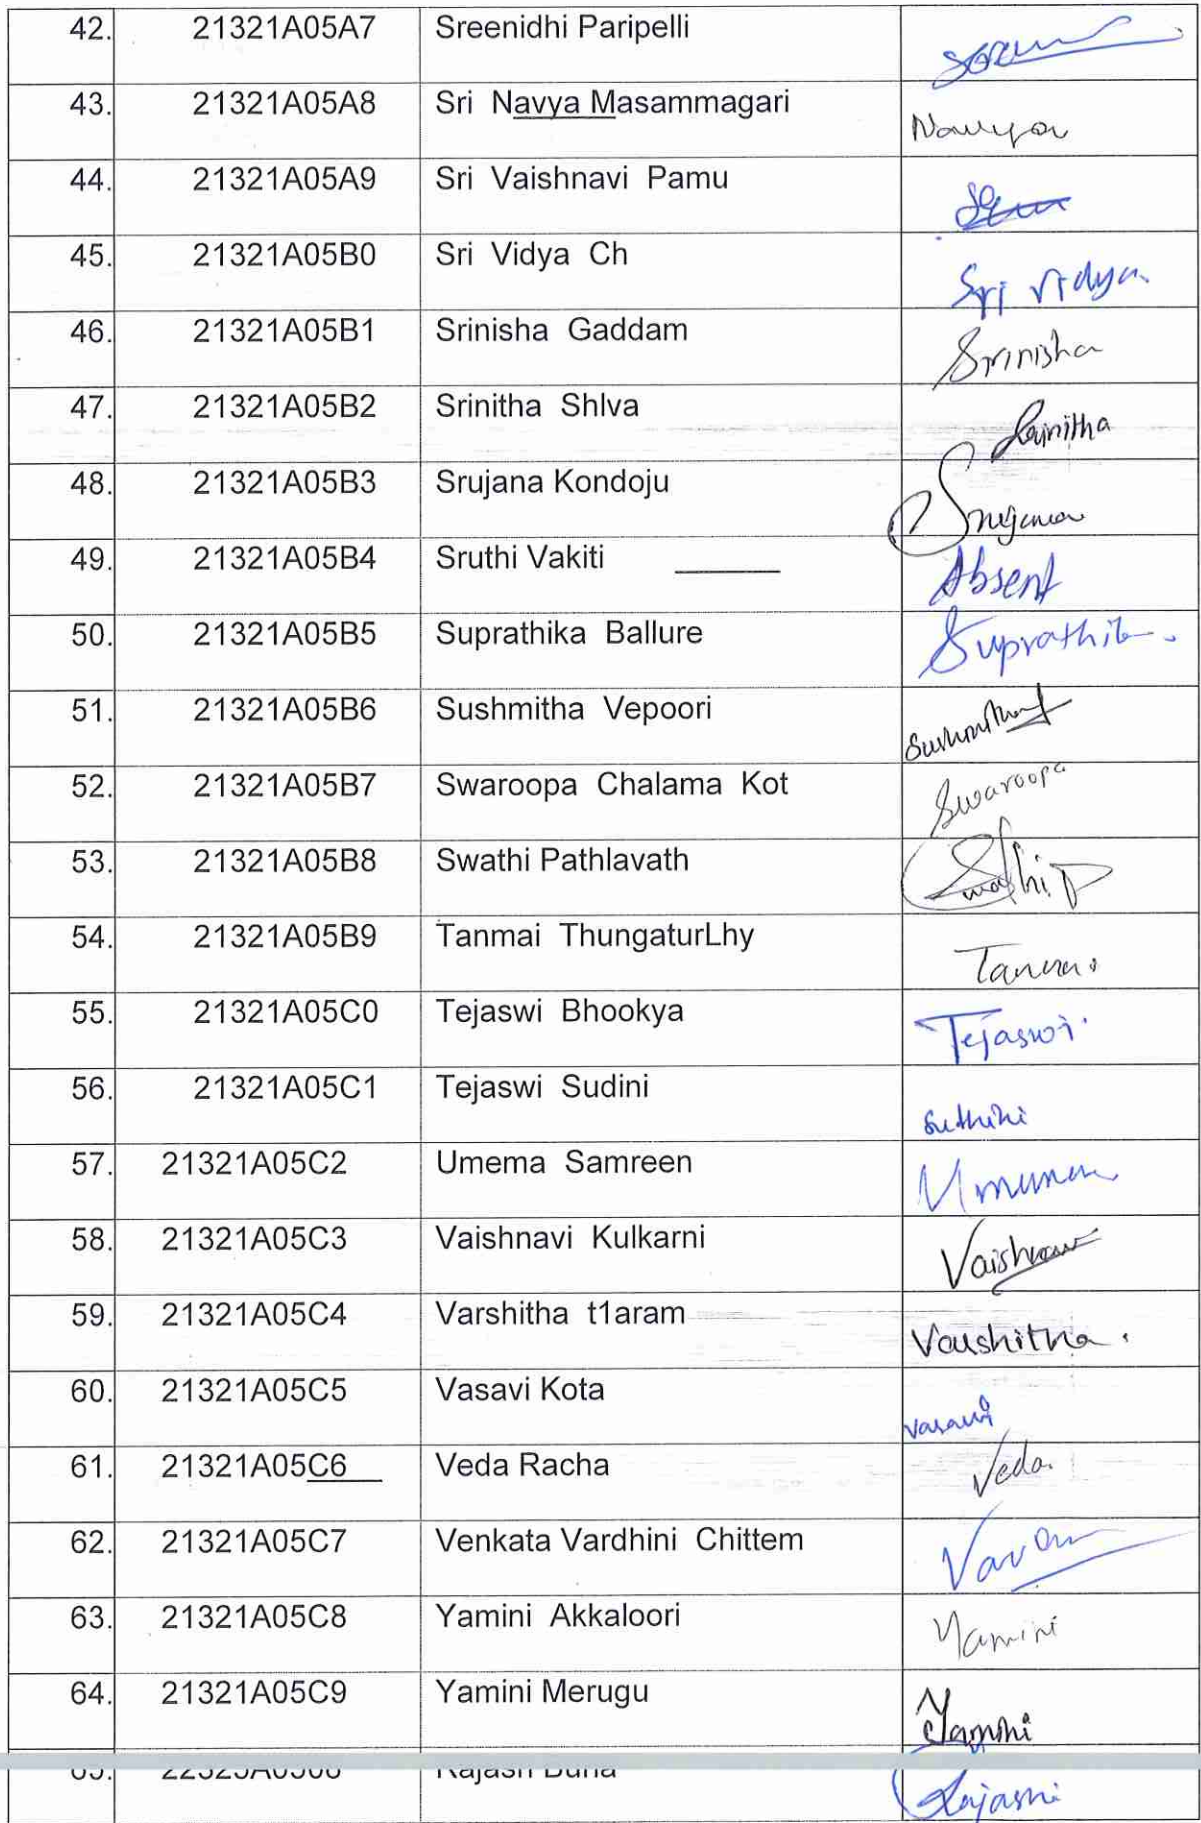 42. 21321A05A7 Sreenidhi Paripelli
43. 21321A05A8 Sri Navya Masammagari Navya
44. 21321A05A9 Sri Vaishnavi Pamu
45. 21321A05B0 Sri Vidya Ch Sri Vidya
46. 21321A05B1 Srinisha Gaddam Srinisha
47. 21321A05B2 Srinitha Shlva Srinitha
48. 21321A05B3 Srujana Kondoju Srujana
49. 21321A05B4 Sruthi Vakiti Absent
50. 21321A05B5 Suprathika Ballure
51. 21321A05B6 Sushmitha Vepoori Sushmitha
52. 21321A05B7 Swaroopa Chalama Kot Swaroopa
53. 21321A05B8 Swathi Pathlavath Swathi P
54. 21321A05B9 Tanmai ThungaturLhy
55. 21321A05C0 Tejaswi Bhookya Tejaswi
56. 21321A05C1 Tejaswi Sudini
57. 21321A05C2 Umema Samreen
58. 21321A05C3 Vaishnavi Kulkarni
59. 21321A05C4 Varshitha t1aram Varshitha.
60. 21321A05C5 Vasavi Kota Vasavi
61. 21321A05C6 Veda Racha Veda
62. 21321A05C7 Venkata Vardhini Chittem
63. 21321A05C8 Yamini Akkaloori Yamini
64. 21321A05C9 Yamini Merugu Yamini
65.